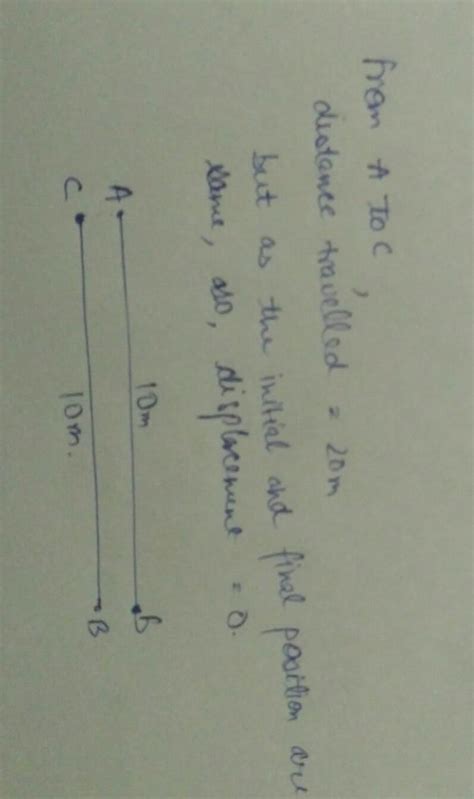 from A to C,
distance travelled = 20m
but as the initial and final position are
same, aso, displacement = 0.
A 10m B
C 10m. B